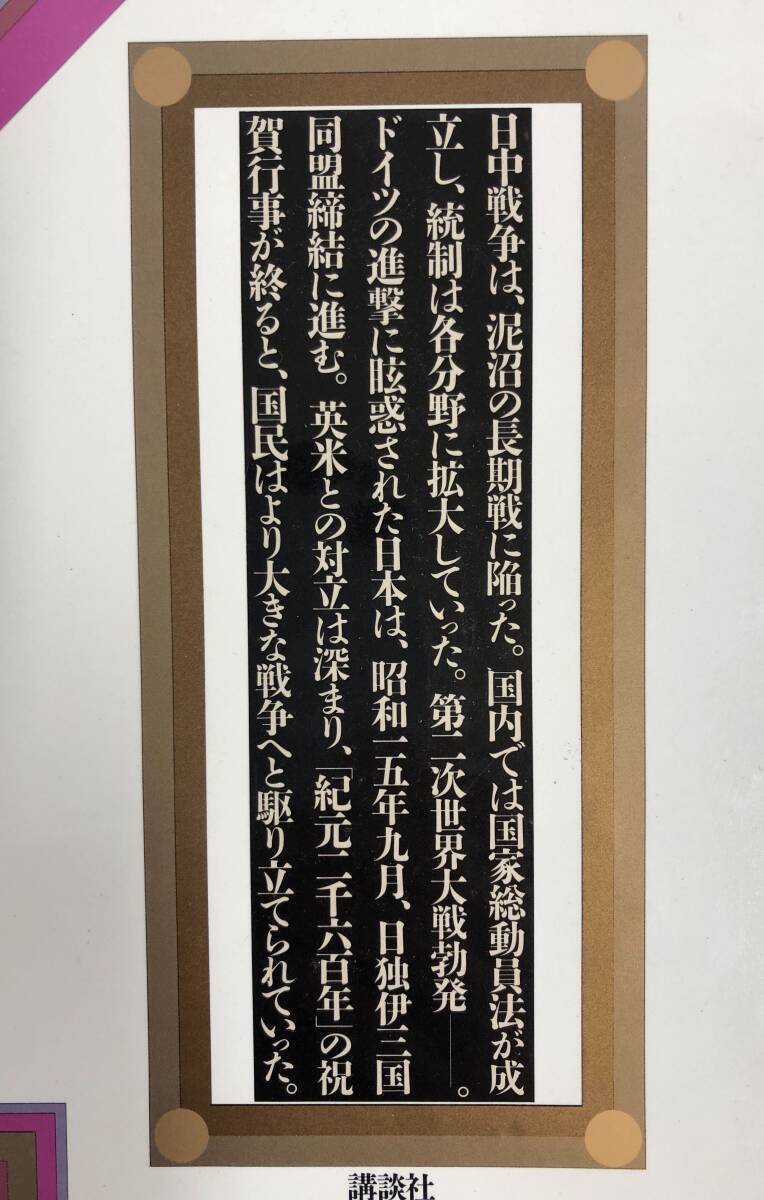 日中戦争は、泥沼の長期戦に陥った。国内では国家総動員法が成
立し、統制は各分野に拡大していった。第二次世界大戦勃発――。
ドイツの進撃に眩惑された日本は、昭和一五年九月、日独伊三国
同盟締結に進む。英米との対立は深まり、「紀元二千六百年」の祝
賀行事が終ると、国民はより大きな戦争へと駆り立てられていった。
講談社